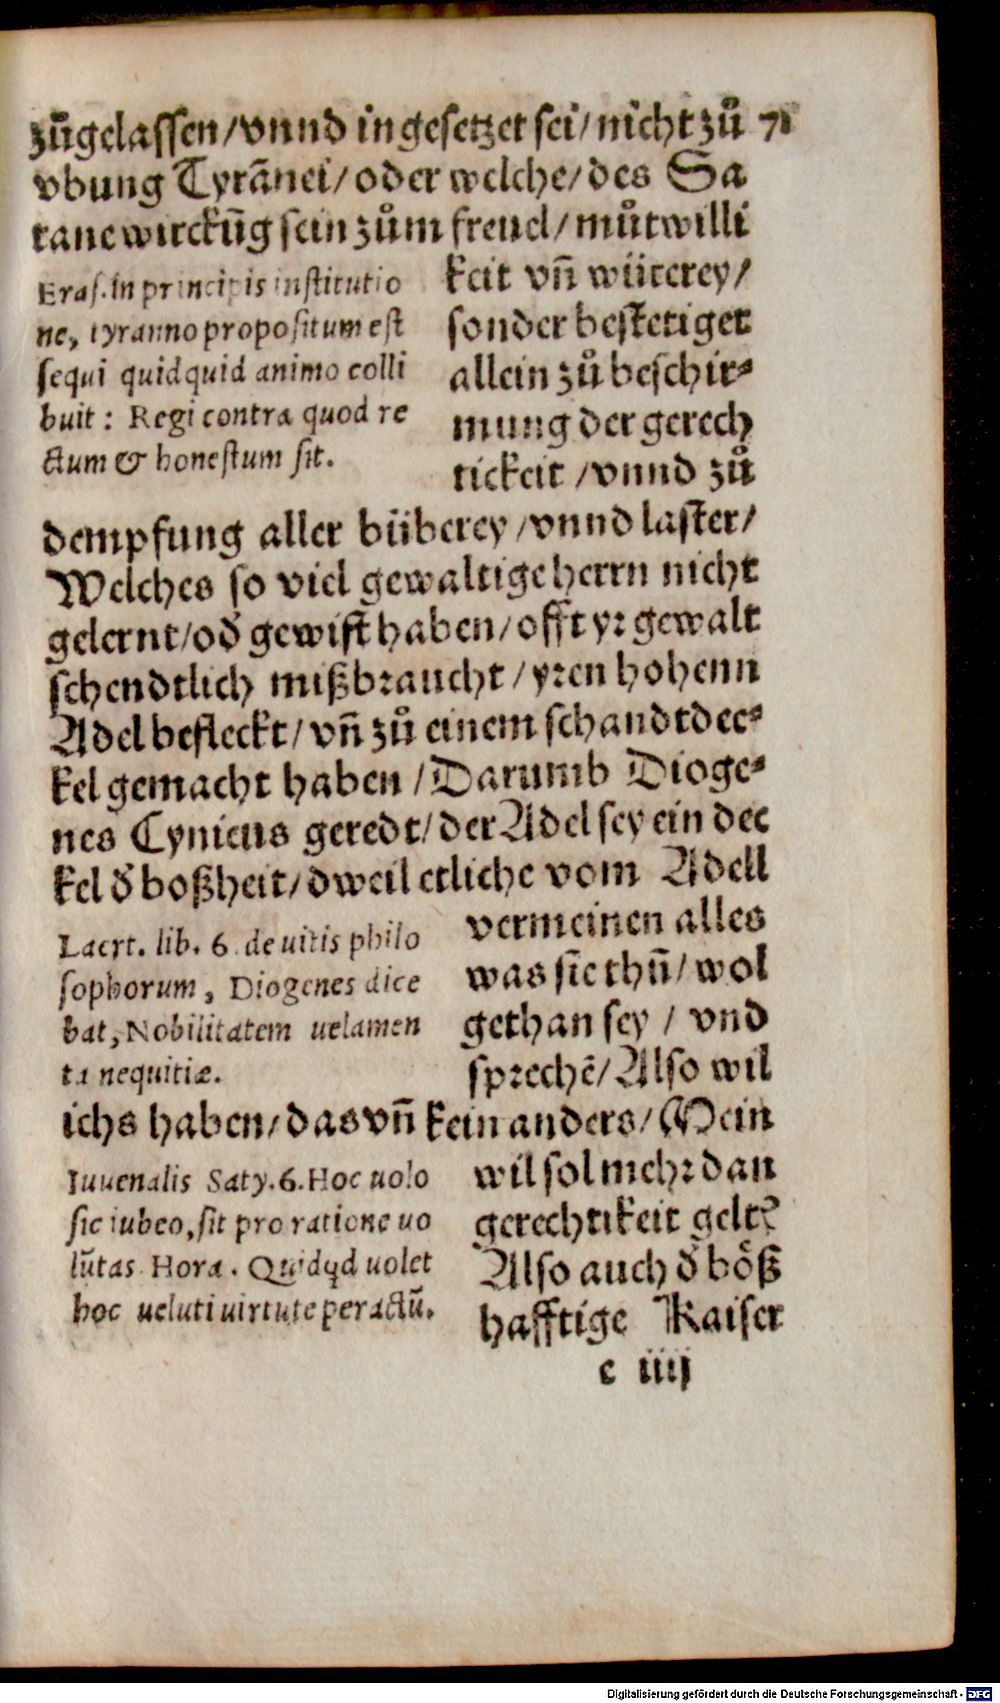 zůgelassen/vnnd in gesetzet sei/nicht zů 71
vbung Tyrãnei/oder welche/des Sa
tane wirckũg sein zům freuel/můtwilli
keit vñ wüterey/
sonder bestetiget
allein zů beschir⸗
mung der gerech
tickeit /vnnd zů
Eras. in principis institutio
ne, tyranno propositum est
sequi quidquid animo colli
buit : Regi contra quod re
ctum & honestum sit.
dempfung aller büberey/vnnd laster/
Welches so viel gewaltige herrn nicht
gelernt/oð gewist haben/offt yr gewalt
schendtlich mißbraucht/yren hohenn
Adel befleckt/vñ zů einem schandtdec⸗
kel gemacht haben/Darumb Dioge⸗
nes Cynicus geredt/der Adel sey ein dec
kel ð boßheit/dweil etliche vom Adell
vermeinen alles
was sie thũ/wol
gethan sey / vnd
sprechẽ/Also wil
Laert. lib. 6. de uitis philo
sophorum, Diogenes dice
bat, Nobilitatem uelamen
ta nequitiæ.
ichs haben/das vñ kein anders/Mein
wil sol mehr dan
gerechtikeit gelt?
Also auch ð böß
hafftige Kaiser
Iuuenalis Saty.6. Hoc uolo
sic iubeo, sit pro ratione uo
lũtas Hora. Quidq̃d uolet
hoc ueluti uirtute peractũ.
e iiij
Digitalisierung gefördert durch die Deutsche Forschungsgemeinschaft - DFG